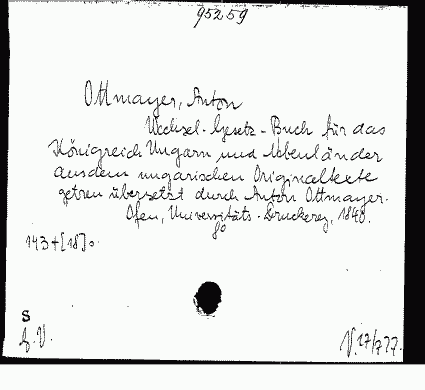 95259
Ottmayer, Anton
Wechsel-Gesetz-Buch für das
Königreich Ungarn und Nebenländer
aus dem ungarischen Originaltexte
getreu übersetzt durch Anton Ottmayer.
Ofen, Universitäts-Druckerey, 1840.
8o
143+[18]o.
S
V. 17/727.